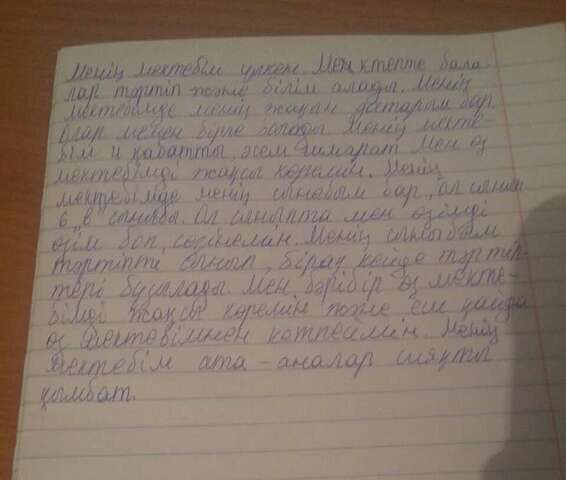 Менің мектебім үлкен. Мен ктепте бала-
лар тәртіп және білім алады. Менің
мектебімде менің жақын достарым бар.
Олар менен бірге болады. Менің мекте-
бім 4 қабатты, әсем ғимарат. Мен өз
мектебімді жақсы көремін. Менің
мектебімде менің сыныбым бар, ол сынып
6 "в" сыныбы. Ол сыныпта мен өзімді
өзім боп, сезінемін. Менің сыныбым
тәртіпте сынып, бірақ кейде тәртіп-
тері бұзылады. Мен бәрібір өз мекте-
бімді жақсы көремін және еш қайда
өз мектебімнен кетпеймін. Менің
мектебім ата-аналар сияқты
қымбат.